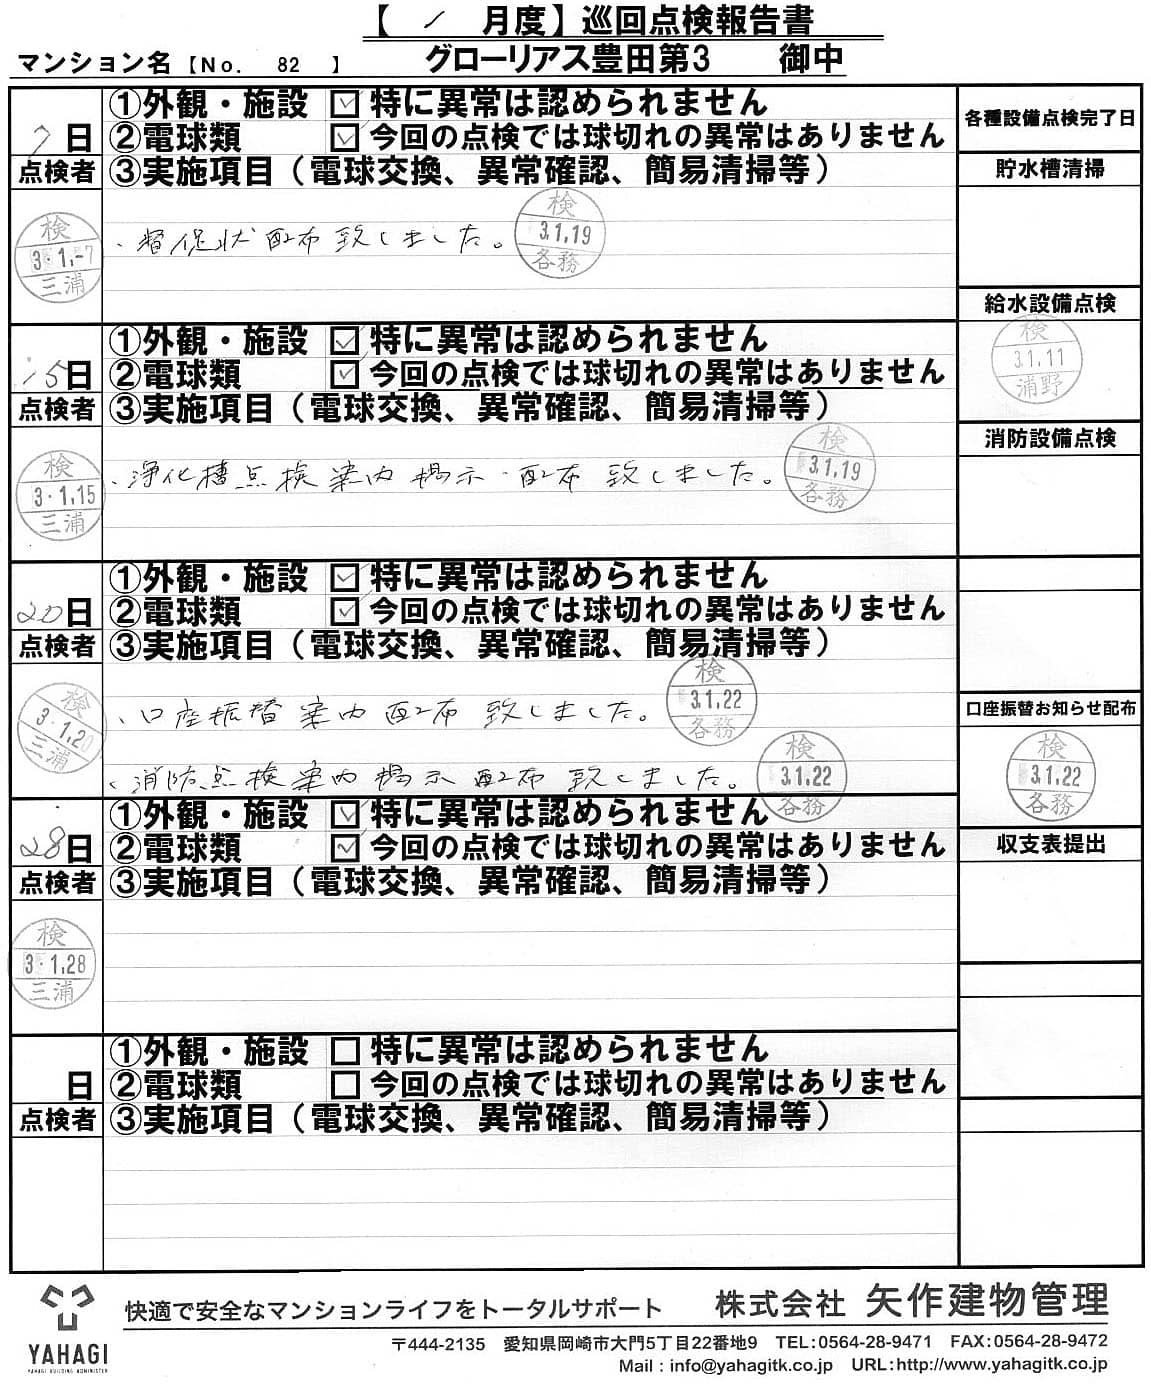 【 1 月度】巡回点検報告書
マンション名【No. 82 】 グローリアス豊田第3 御中
7日
①外観・施設 ☑ 特に異常は認められません
②電球類 ☑ 今回の点検では球切れの異常はありません
点検者 ③実施項目（電球交換、異常確認、簡易清掃等）
検 3・1.-7 三浦
・督促状配布致しました。
検 3.1.19 各務
15日
①外観・施設 ☑ 特に異常は認められません
②電球類 ☑ 今回の点検では球切れの異常はありません
点検者 ③実施項目（電球交換、異常確認、簡易清掃等）
検 3・1.15 三浦
・浄化槽点検案内掲示・配布致しました。
検 3.1.19 各務
20日
①外観・施設 ☑ 特に異常は認められません
②電球類 ☑ 今回の点検では球切れの異常はありません
点検者 ③実施項目（電球交換、異常確認、簡易清掃等）
検 3・1.20 三浦
・口座振替案内配布致しました。
検 3.1.22 各務
・消防点検案内掲示配布致しました。
検 3.1.22 各務
28日
①外観・施設 ☑ 特に異常は認められません
②電球類 ☑ 今回の点検では球切れの異常はありません
点検者 ③実施項目（電球交換、異常確認、簡易清掃等）
検 3・1.28 三浦
日
①外観・施設 □ 特に異常は認められません
②電球類 □ 今回の点検では球切れの異常はありません
点検者 ③実施項目（電球交換、異常確認、簡易清掃等）
各種設備点検完了日
貯水槽清掃
給水設備点検
検 3.1.11 浦野
消防設備点検
口座振替お知らせ配布
検 3.1.22 各務
収支表提出
YAHAGI
YAHAGI BUILDING ADMINISTER
快適で安全なマンションライフをトータルサポート 株式会社 矢作建物管理
〒444-2135 愛知県岡崎市大門5丁目22番地9 TEL:0564-28-9471 FAX:0564-28-9472
Mail : info@yahagitk.co.jp URL:http://www.yahagitk.co.jp